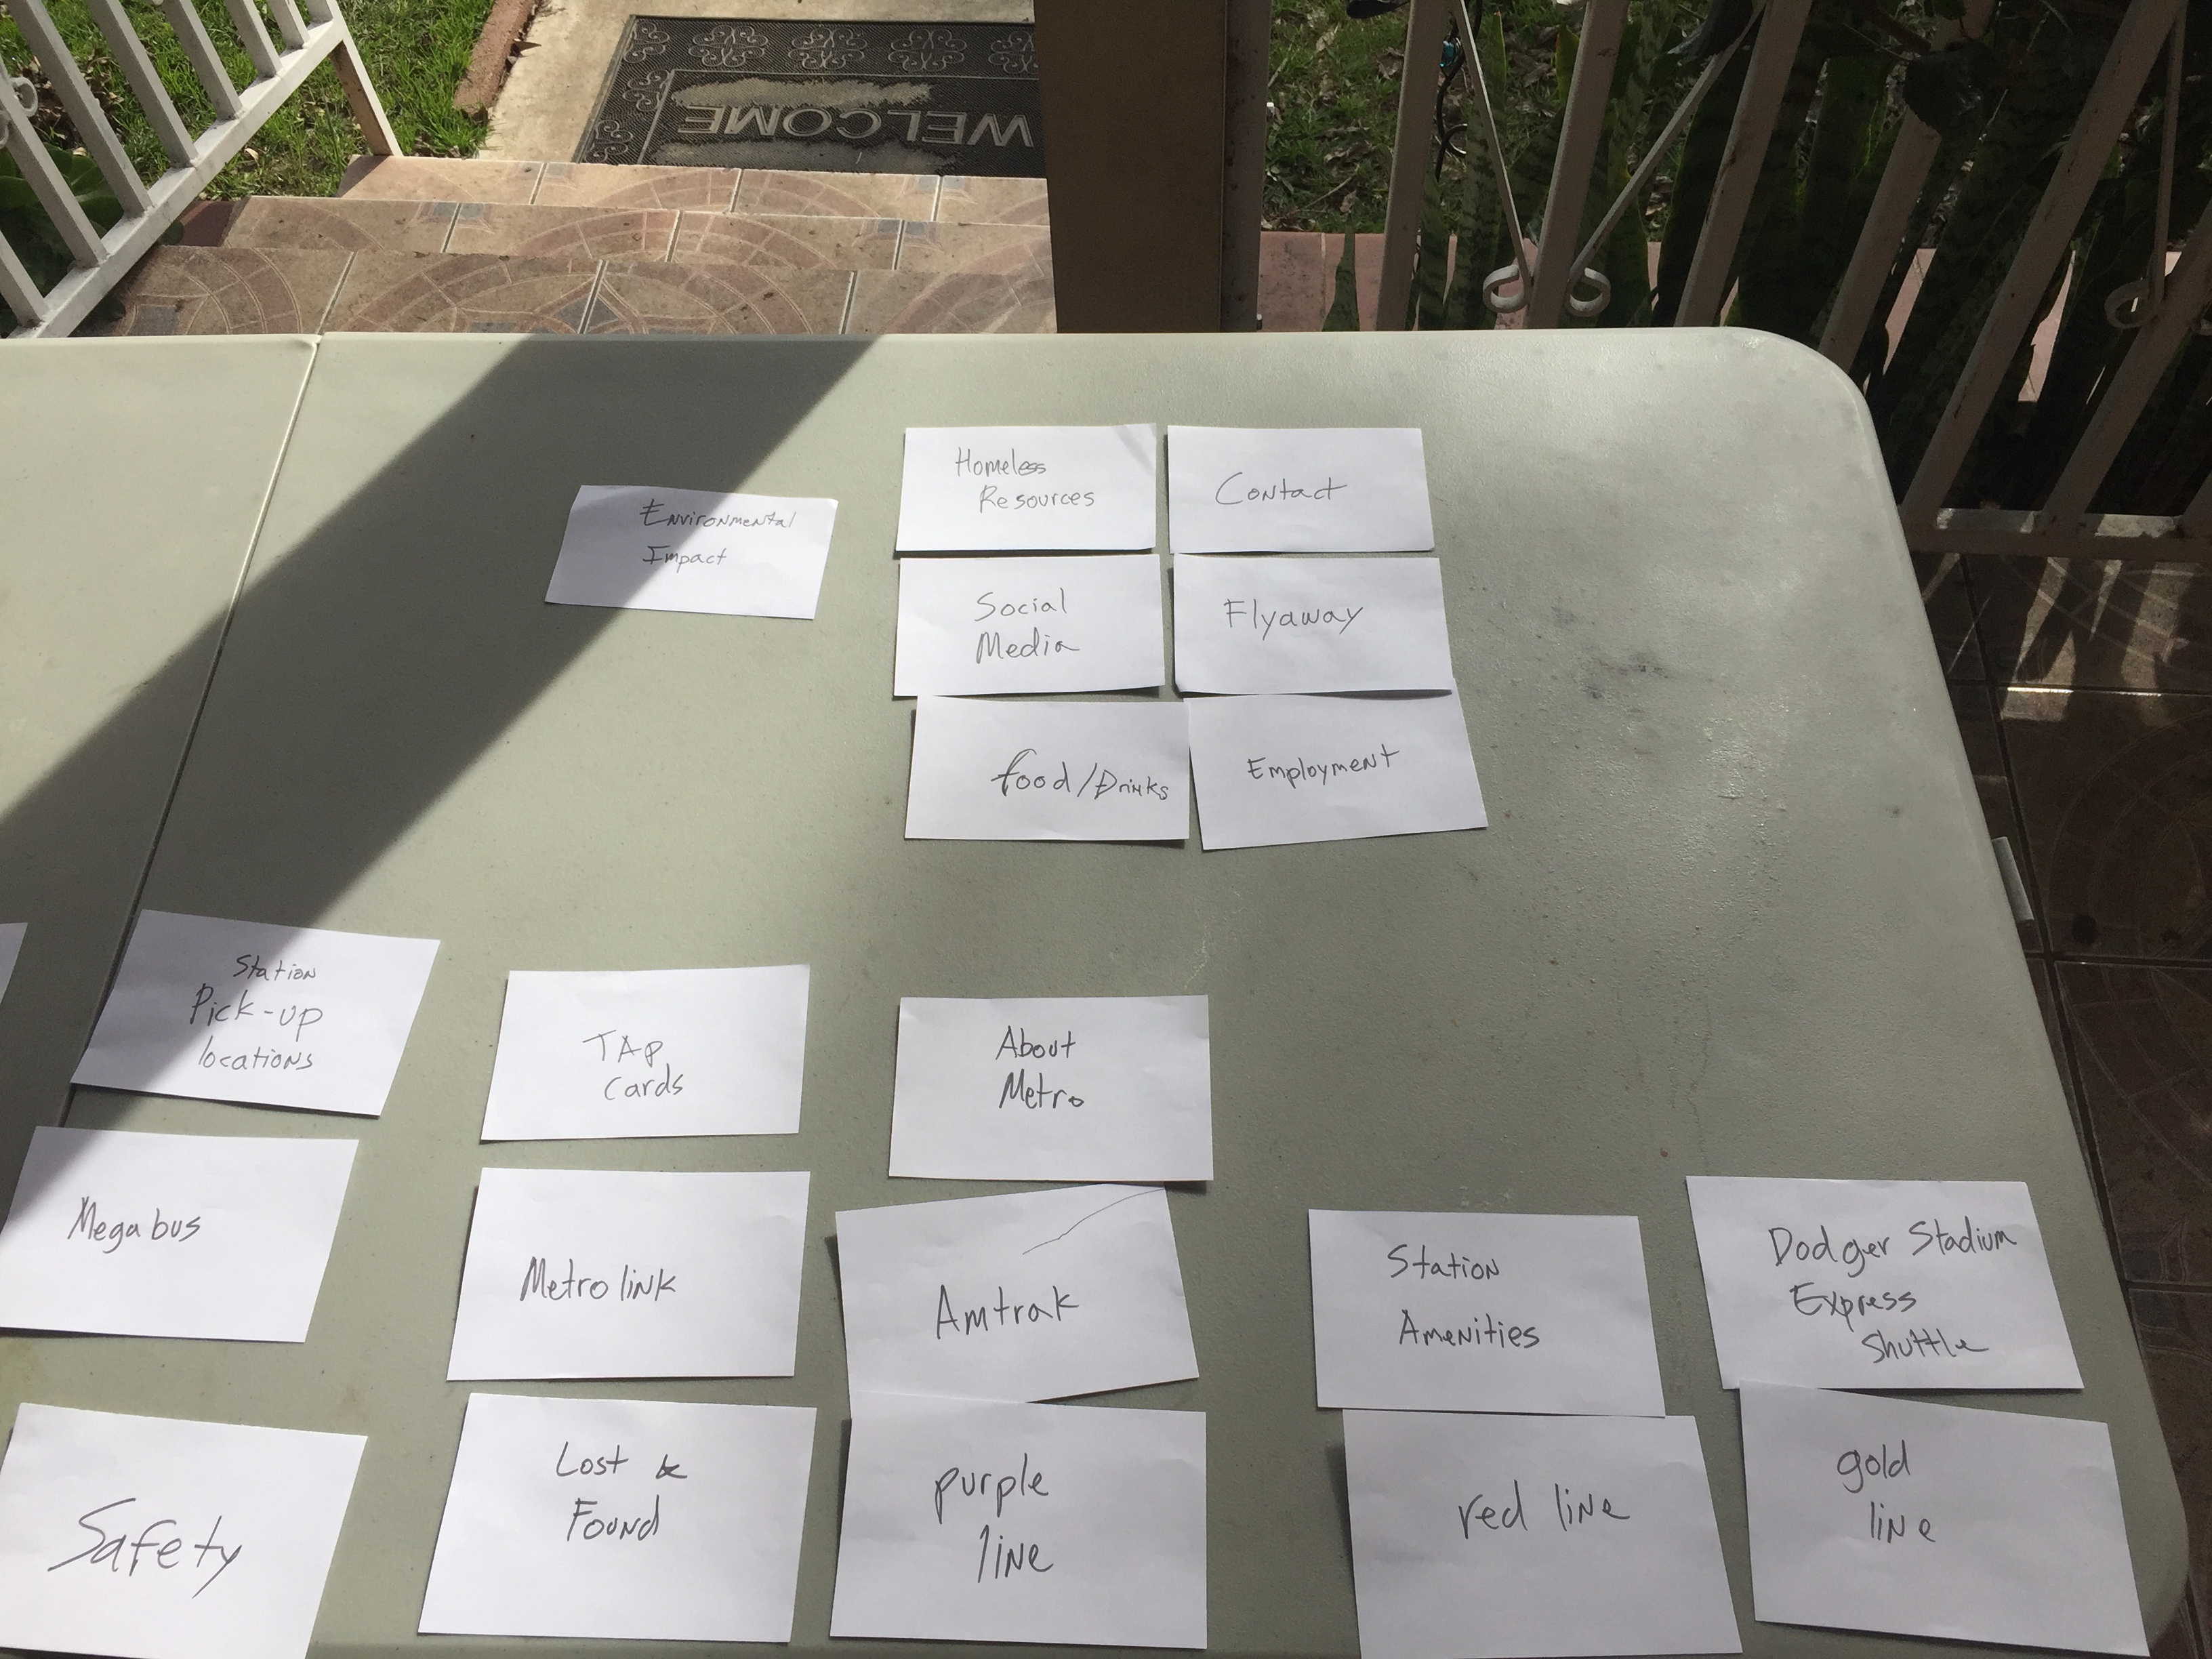 WELCOME
Environmental
Impact
Homeless
Resources
Contact
Social
Media
Flyaway
food/Drinks
Employment
Station
Pick-up
locations
TAP
cards
About
Metro
Megabus
Metrolink
Amtrak
Station
Amenities
Dodger Stadium
Express
Shuttle
Safety
Lost &
Found
purple
line
red line
gold
line